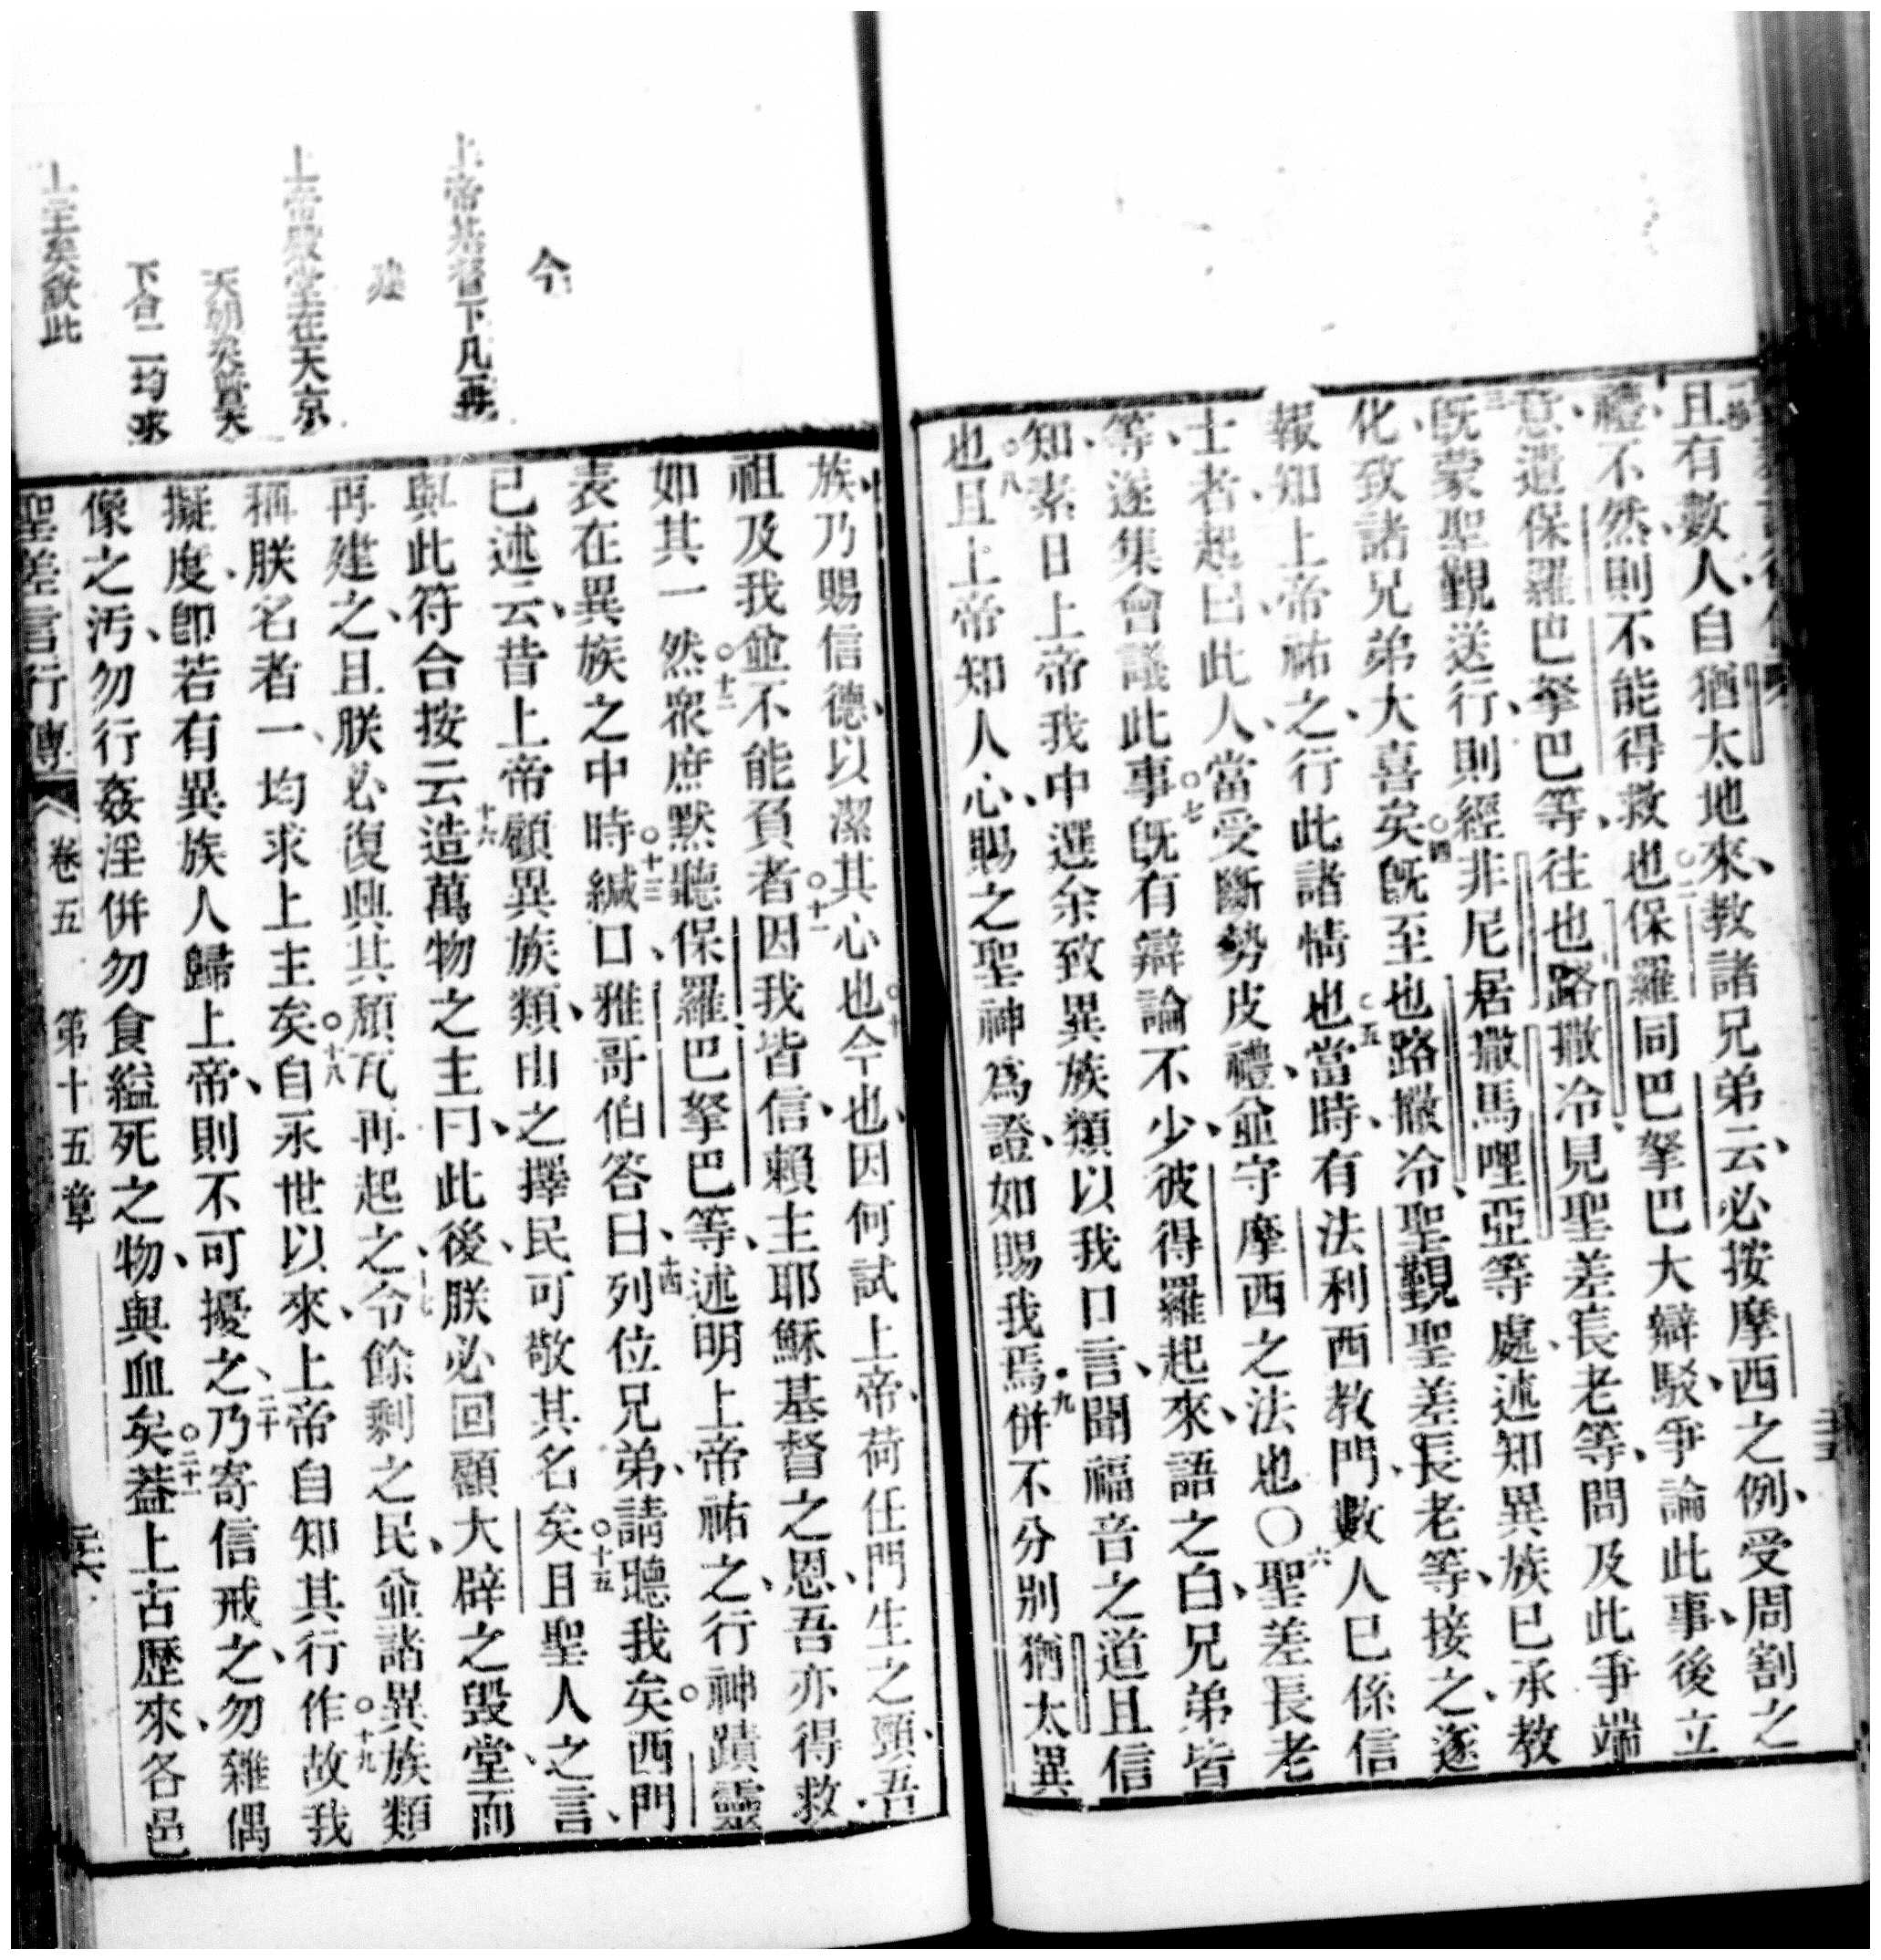 且有數人自猶太地來、教諸兄弟云、必按摩西之例、受周割之
禮、不然、則不能得救也○二保羅同巴拏巴大辯駁、爭論此事、後立
意、遣保羅巴拏巴等、往也路撒冷、見聖差長老等、問及此爭端
三既蒙聖覲送行、則經非尼居撒馬哩亞等處、述知異族已承教
化、致諸兄弟大喜矣○四既至也路撒冷、聖覲聖差長老等、接之、遂
報知上帝祐之、行此諸情也○五當時、有法利西教門、數人已係信
士者、起曰、此人、當受斷勢皮禮、並守摩西之法也○六聖差長老
等、遂集會議此事○七既有辯論不少、彼得羅起來、語之白、兄弟皆
知、素日上帝我中選余、致異族類以我口言、聞福音之道、且信
也○八且上帝知人心、賜之聖神爲證、如賜我焉九併不分別猶太異
今
上帝基督下凡再
建
上帝殿堂在天京
天朝矣普天
下合一均求
上主矣欽此
族、乃賜信德、以潔其心也○十今也、因何試上帝、荷任門生之頸、吾
祖及我並不能負者○十一因我皆信、賴主耶穌基督之恩、吾亦得救、
如其一然○十二衆庶默聽保羅巴拏巴等、述明上帝祐之、行神蹟靈
表在異族之中時○十三緘口、雅哥伯答曰、列位兄弟、請聽我矣○十四西門
已述云、昔上帝顧異族類、由之擇民、可敬其名矣○十五且聖人之言、
與此符合、按云十六造萬物之主曰、此後、朕必回顧大辟之毀堂、而
再建之、且朕必復興其頹瓦、再起之、十七令餘剩之民、並諸異族類
稱朕名者一、均求上主矣○十八自永世以來、上帝自知其行作○十九故我
擬度、卽若有異族人歸上帝、則不可擾之、二十乃寄信戒之、勿雜偶
像之汚、勿行姦淫、併勿食縊死之物、與血矣○二十一葢上古歷來、各邑
聖差言行傳 卷五 第十五章